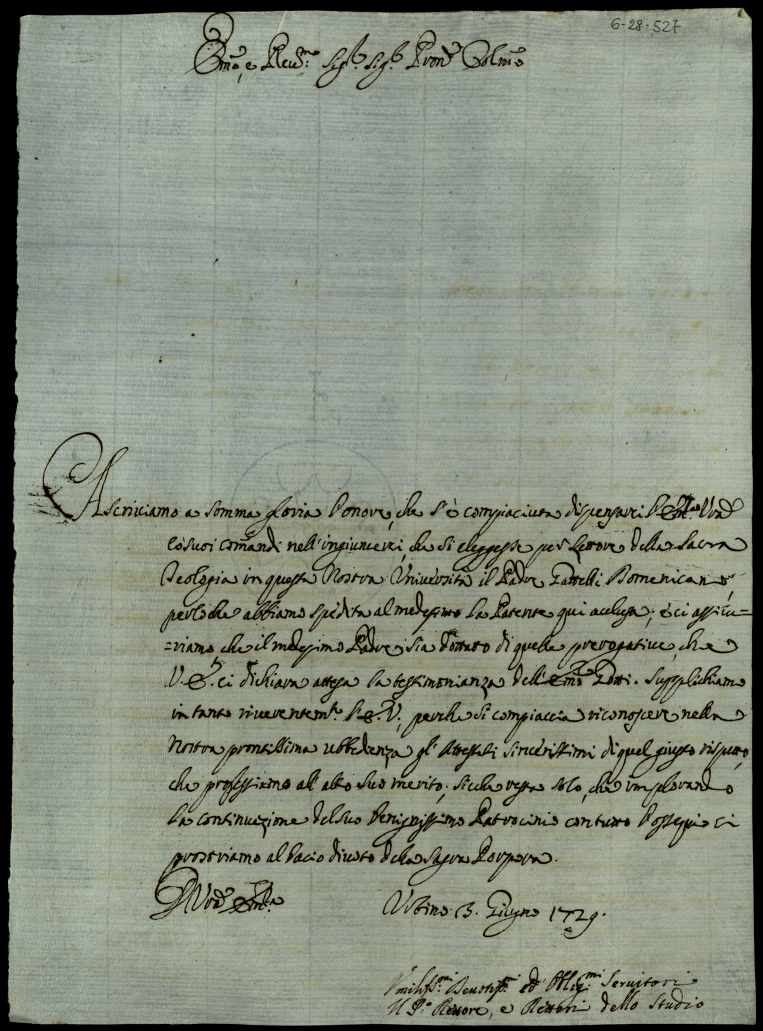 6-28-527
Emo, e Revmo Sigr. Sigr. Pron Colmo
Ascriviamo a somma gloria l'onore, che s'è compiaciuta dispensarci l'Emza Vra
co suoi comandi nell'ingiungerci, che si eleggesse per Lettore della Sacra
Teologia in questa Nostra Università il Padre Domenicano
perloche abbiamo spedita al medesimo la Patente qui acclusa; e ci assicu=
=riamo, che il medesimo Padre sia dottato di quelle prerogative, che
V. E. ci dichiara attesa la testimonianza dell'Emo Gotti. Supplichiamo
intanto riverentemte l'E. V., perche si compiaccia riconoscere nella
nostra prontissima ubbedienza gl'Attestati sincerissimi di quel giusto rispetto,
che professiamo al'alto suo merito; sicche resta solo, che implorando
la continuazione del suo benignissimo Patrocinio con tutto l'ossequio ci
prostriamo al bacio divoto della Sagra Porpora.
D V. Vra Emza
Urbino 3. Giugno 1729.
Umilissmi Devotissmi ed Obligmi Servitori
Il Rettore, e Rettori dello Studio